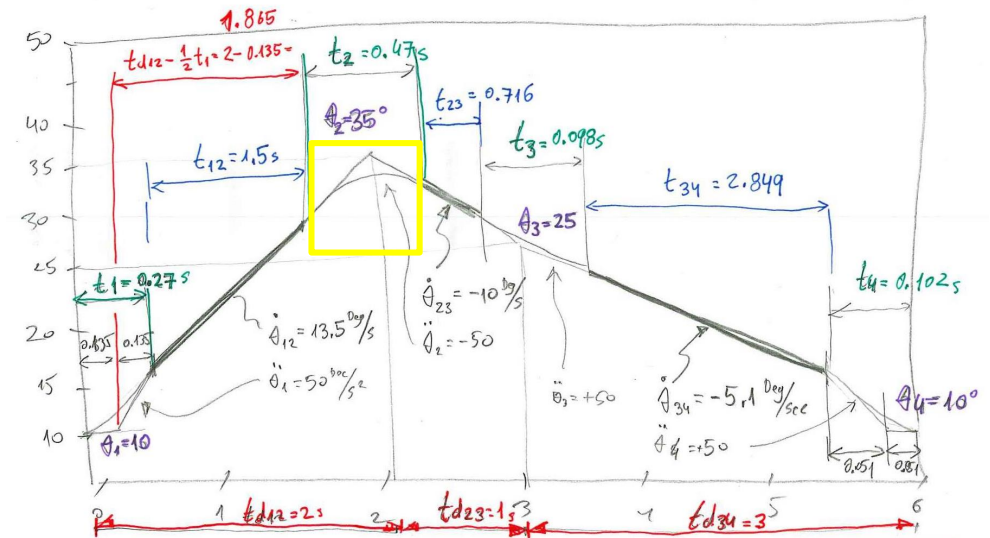 1.865
50
td12-½t1=2-0.135=
t2=0.47s
t23=0.716
40
θ2=35°
t3=0.098s
t12=1.5s
35
t34=2.849
30
θ3=25
25
t1=0.27s
t4=0.102s
θ̇23=-10 Deg/s
20
θ̇12=13.5 Deg/s
0.135
θ̈2=-50
15
θ̈1=50
θ̈3=+50
θ̇34=-5,1 Deg/sec
θ4=10°
10
θ1=10
θ̈4=+50
0.051
0 1 2 3 4 5 6
td12=2s
td23=1s
td34=3